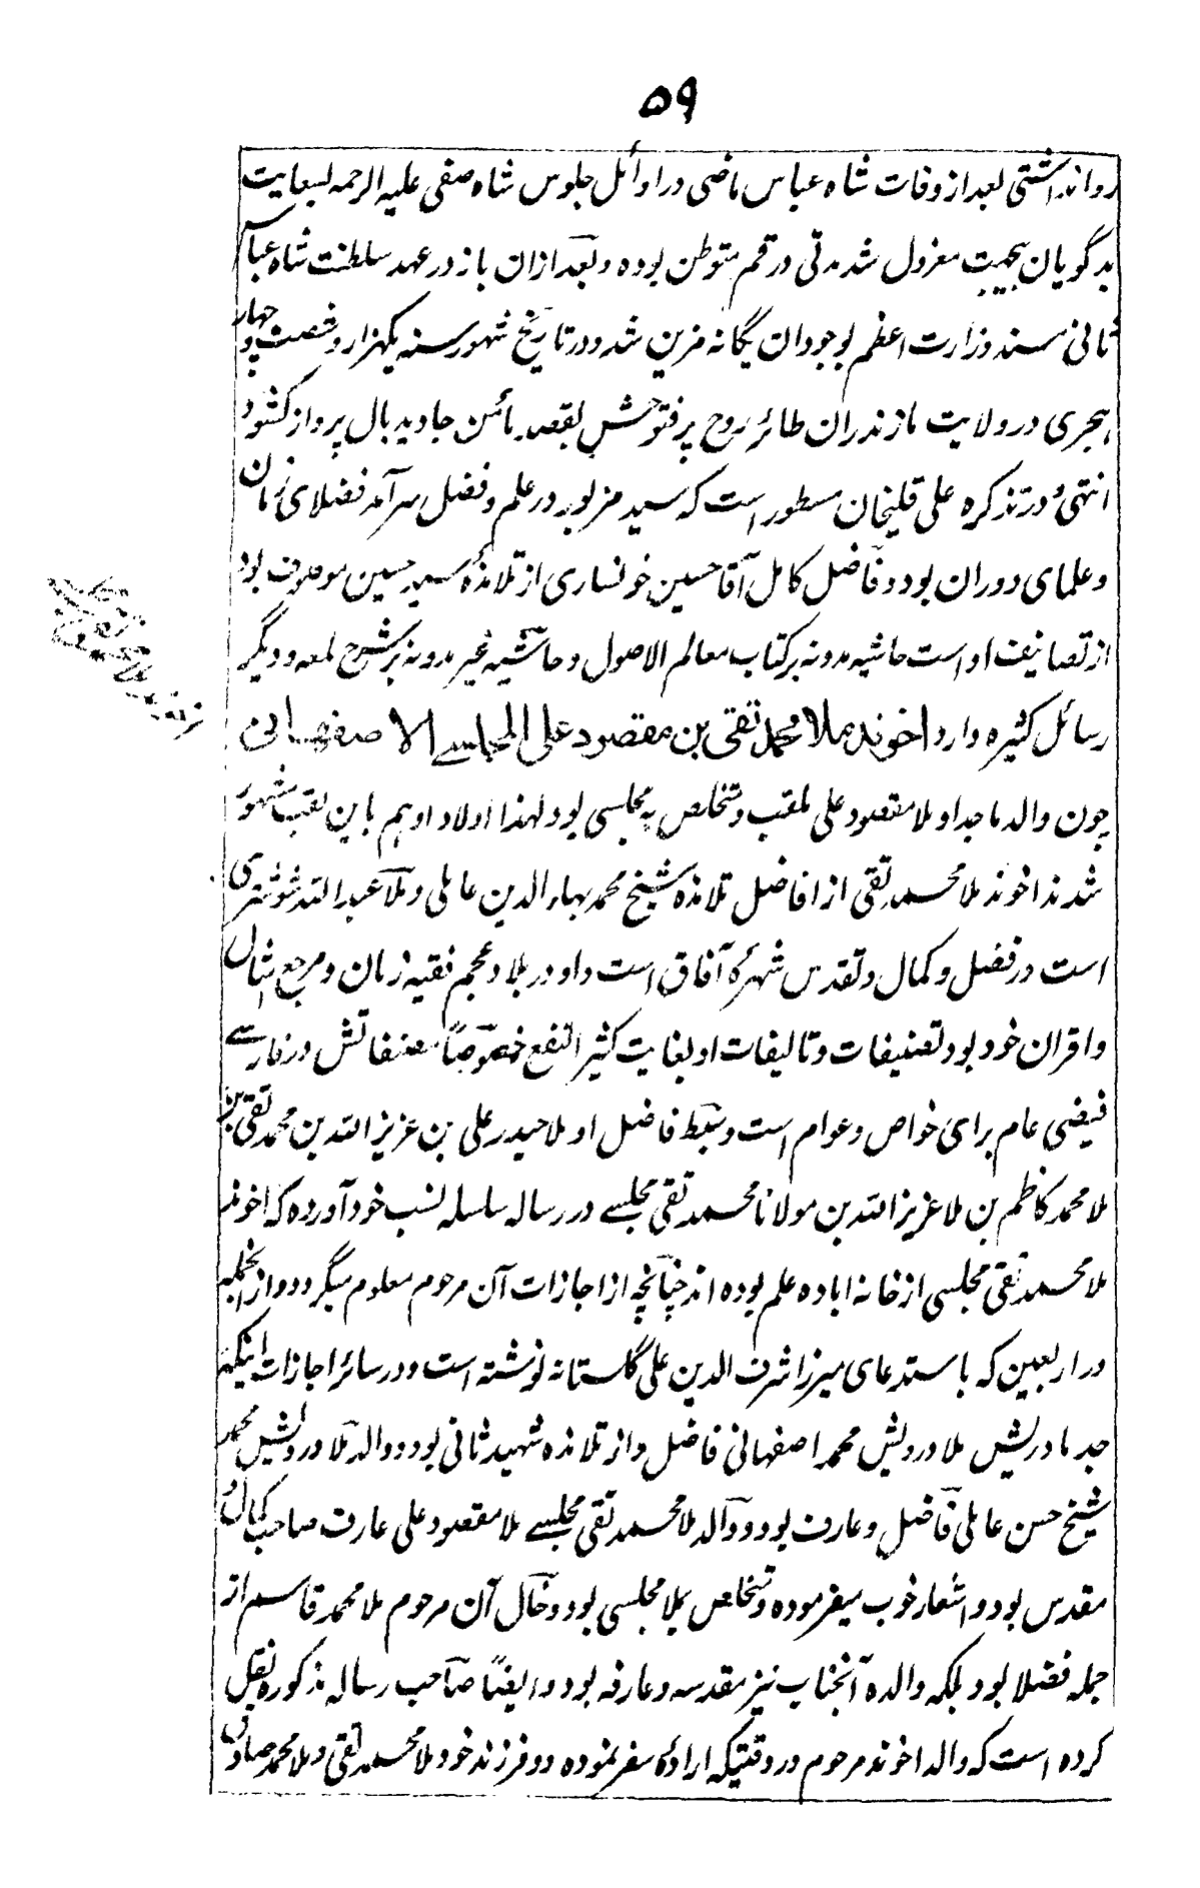 ۵۹
روانداشتی بعد از وفات شاه عباس ماضی در اوائل جلوس شاه صفی علیه الرحمه بسعایت
بدگویان بیجهت معزول شد مدتی در قم متوطن بوده و بعد ازان باز در عهد سلطنت شاه عباس
ثانی مسند وزارت اعظم بوجود ان یگانه مزین شد و در تاریخ شهور سنه یکهزار و شصت و چهار
هجری در ولایت مازندران طائر روح پر فتوحش بقصد مأمن جاوید بال پرواز کشود
انتهی و در تذکره علی قلیخان مسطور است که سید مزبور در علم و فضل سرآمد فضلای زمان
و علمای دوران بود و فاضل کامل آقا حسین خونساری از تلامذه سید حسین موصوف بود
از تصانیف او است حاشیه مدونه بر کتاب معالم الاصول و حاشیه غیر مدونه بر شرح لمعه و دیگر
رسائل کثیره دارد اخوند ملا محمد تقی بن مقصود علی المجلسے الاصفهانی
چون والد ماجد او ملا مقصود علی ملقب و متخلص به مجلسی بود لهذا اولاد او هم باین لقب مشهور
شدند اخوند ملا محمد تقی از افاضل تلامذه شیخ محمد بهاء الدین عاملی و ملا عبد الله شوشتری
است در فضل و کمال و تقدس شهرۀ آفاق است و او در بلاد عجم فقیه زمان و مرجع امثال
و اقران خود بود تصنیفات و تالیفات او بغایت کثیر النفع خصوصاً مصنفاتش در فارسے
فیضی عام برای خواص و عوام است و سبط فاضل او ملا حیدر علی بن عزیز الله بن محمد تقی بن
ملا محمد کاظم بن ملا عزیز الله بن مولانا محمد تقی مجلسے در رساله سلسله نسب خود آورده که اخوند
ملا محمد تقی مجلسی از خانه اباده علم بوده اند چنانچه از اجازات آن مرحوم معلوم میگردد و از انجمله
در اربعین که باستدعای میرزا شرف الدین علی گلستانه نوشته است و در سائر اجازات اینکه
جد مادریش ملا درویش محمد اصفهانی فاضل و از تلامذه شهید ثانی بود و والد ملا درویش محمد
شیخ حسن عاملی فاضل و عارف بود و والد ملا محمد تقی مجلسے ملا مقصود علی عارف صاحب کمال و
مقدس بود و اشعار خوب میفرموده و تخلص بملا مجلسی بود و خال آن مرحوم ملا محمد قاسم از
جمله فضلا بود بلکه والده آنجناب نیز مقدسه و عارفه بود و ایضاً صاحب رساله مذکوره نقل
کرده است که والد اخوند مرحوم در وقتیکه ارادۀ سفر نموده دو فرزند خود ملا محمد تقی و ملا محمد صادق